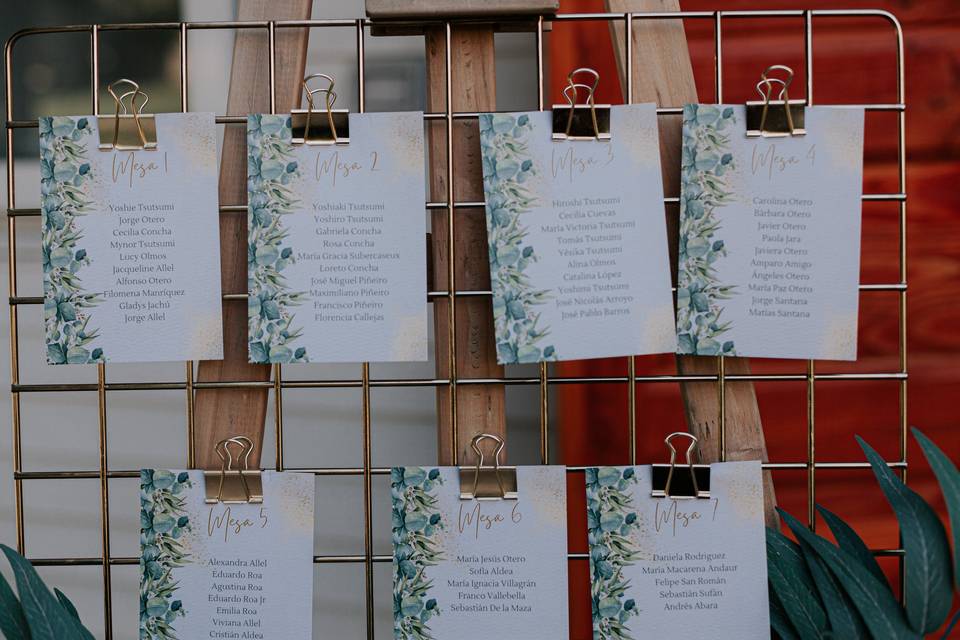 Mesa 1
Yoshie Tsutsumi
Jorge Otero
Cecilia Concha
Mynor Tsutsumi
Lucy Olmos
Jacqueline Allel
Alfonso Otero
Filomena Manríquez
Gladys Jachú
Jorge Allel
Mesa 2
Yoshiaki Tsutsumi
Yoshiro Tsutsumi
Gabriela Concha
Rosa Concha
María Gracia Subercaseux
Loreto Concha
José Miguel Piñeiro
Maximiliano Piñeiro
Francisco Piñeiro
Florencia Callejas
Mesa 3
Hiroshi Tsutsumi
Cecilia Cuevas
María Victoria Tsutsumi
Tomás Tsutsumi
Yésika Tsutsumi
Alina Olmos
Catalina López
Yoshimi Tsutsumi
José Nicolás Arroyo
José Pablo Barros
Mesa 4
Carolina Otero
Bárbara Otero
Javier Otero
Paola Jara
Javiera Otero
Amparo Amigo
Ángeles Otero
María Paz Otero
Jorge Santana
Matías Santana
Mesa 5
Alexandra Allel
Eduardo Roa
Agustina Roa
Eduardo Roa Jr
Emilia Roa
Viviana Allel
Cristián Aldea
Mesa 6
María Jesús Otero
Sofía Aldea
María Ignacia Villagrán
Franco Vallebella
Sebastián De la Maza
Mesa 7
Daniela Rodríguez
María Macarena Andaur
Felipe San Román
Sebastián Sufán
Andrés Abara